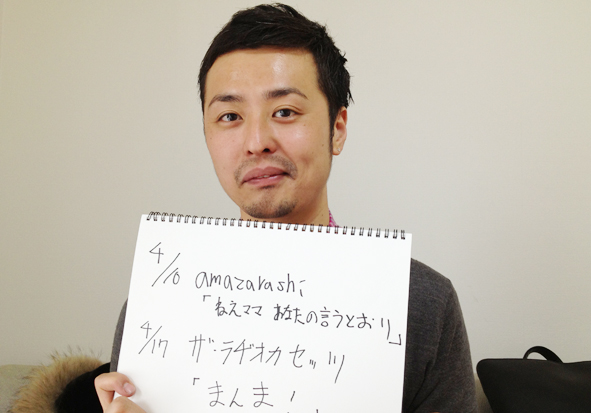 4/10 amazarashi
「ねえママ あなたの言うとおり」
4/17 ザ・ラヂオカセッツ
「まんま！